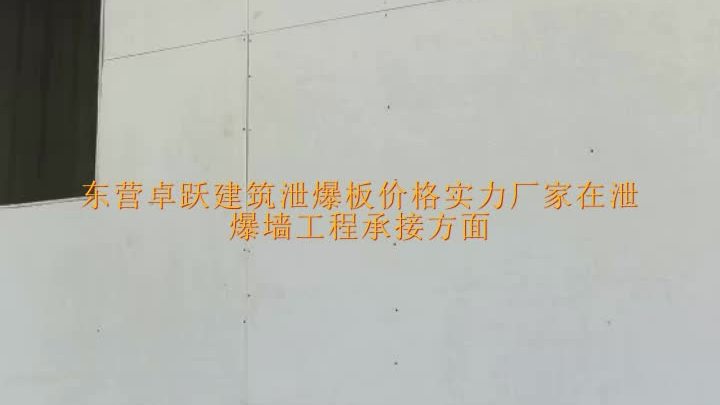 东营卓跃建筑泄爆板价格实力厂家在泄
爆墙工程承接方面